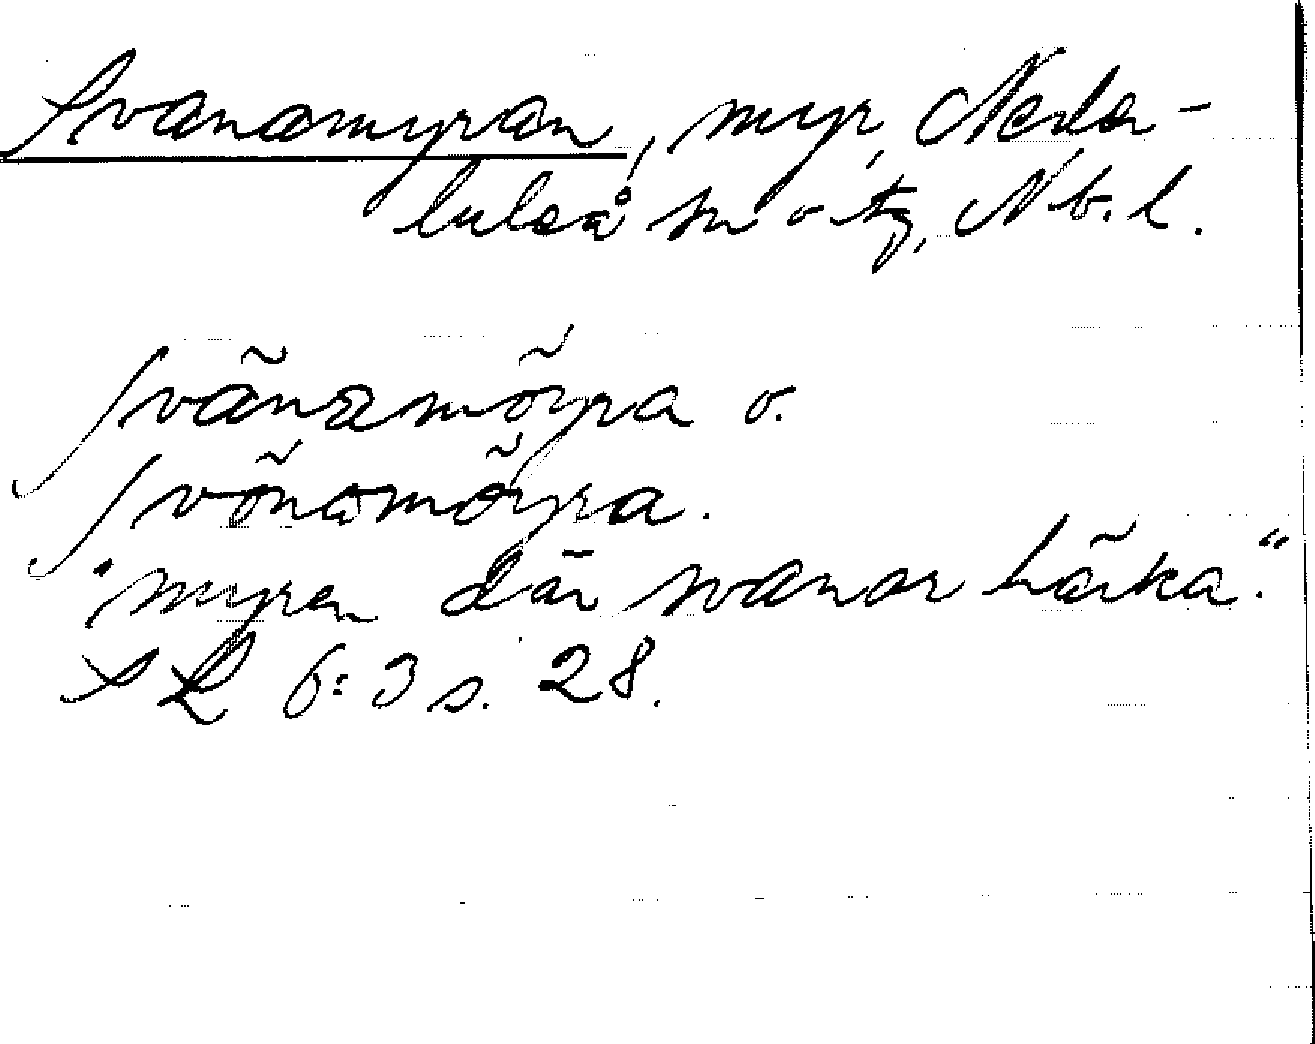 Svanamyran, myr, Neder-
luleå sn o tg, Nb. l.
svãnamõyra o.
svõnamõyra.
"myren där svanar häcka."
SL 6:3 s. 28.